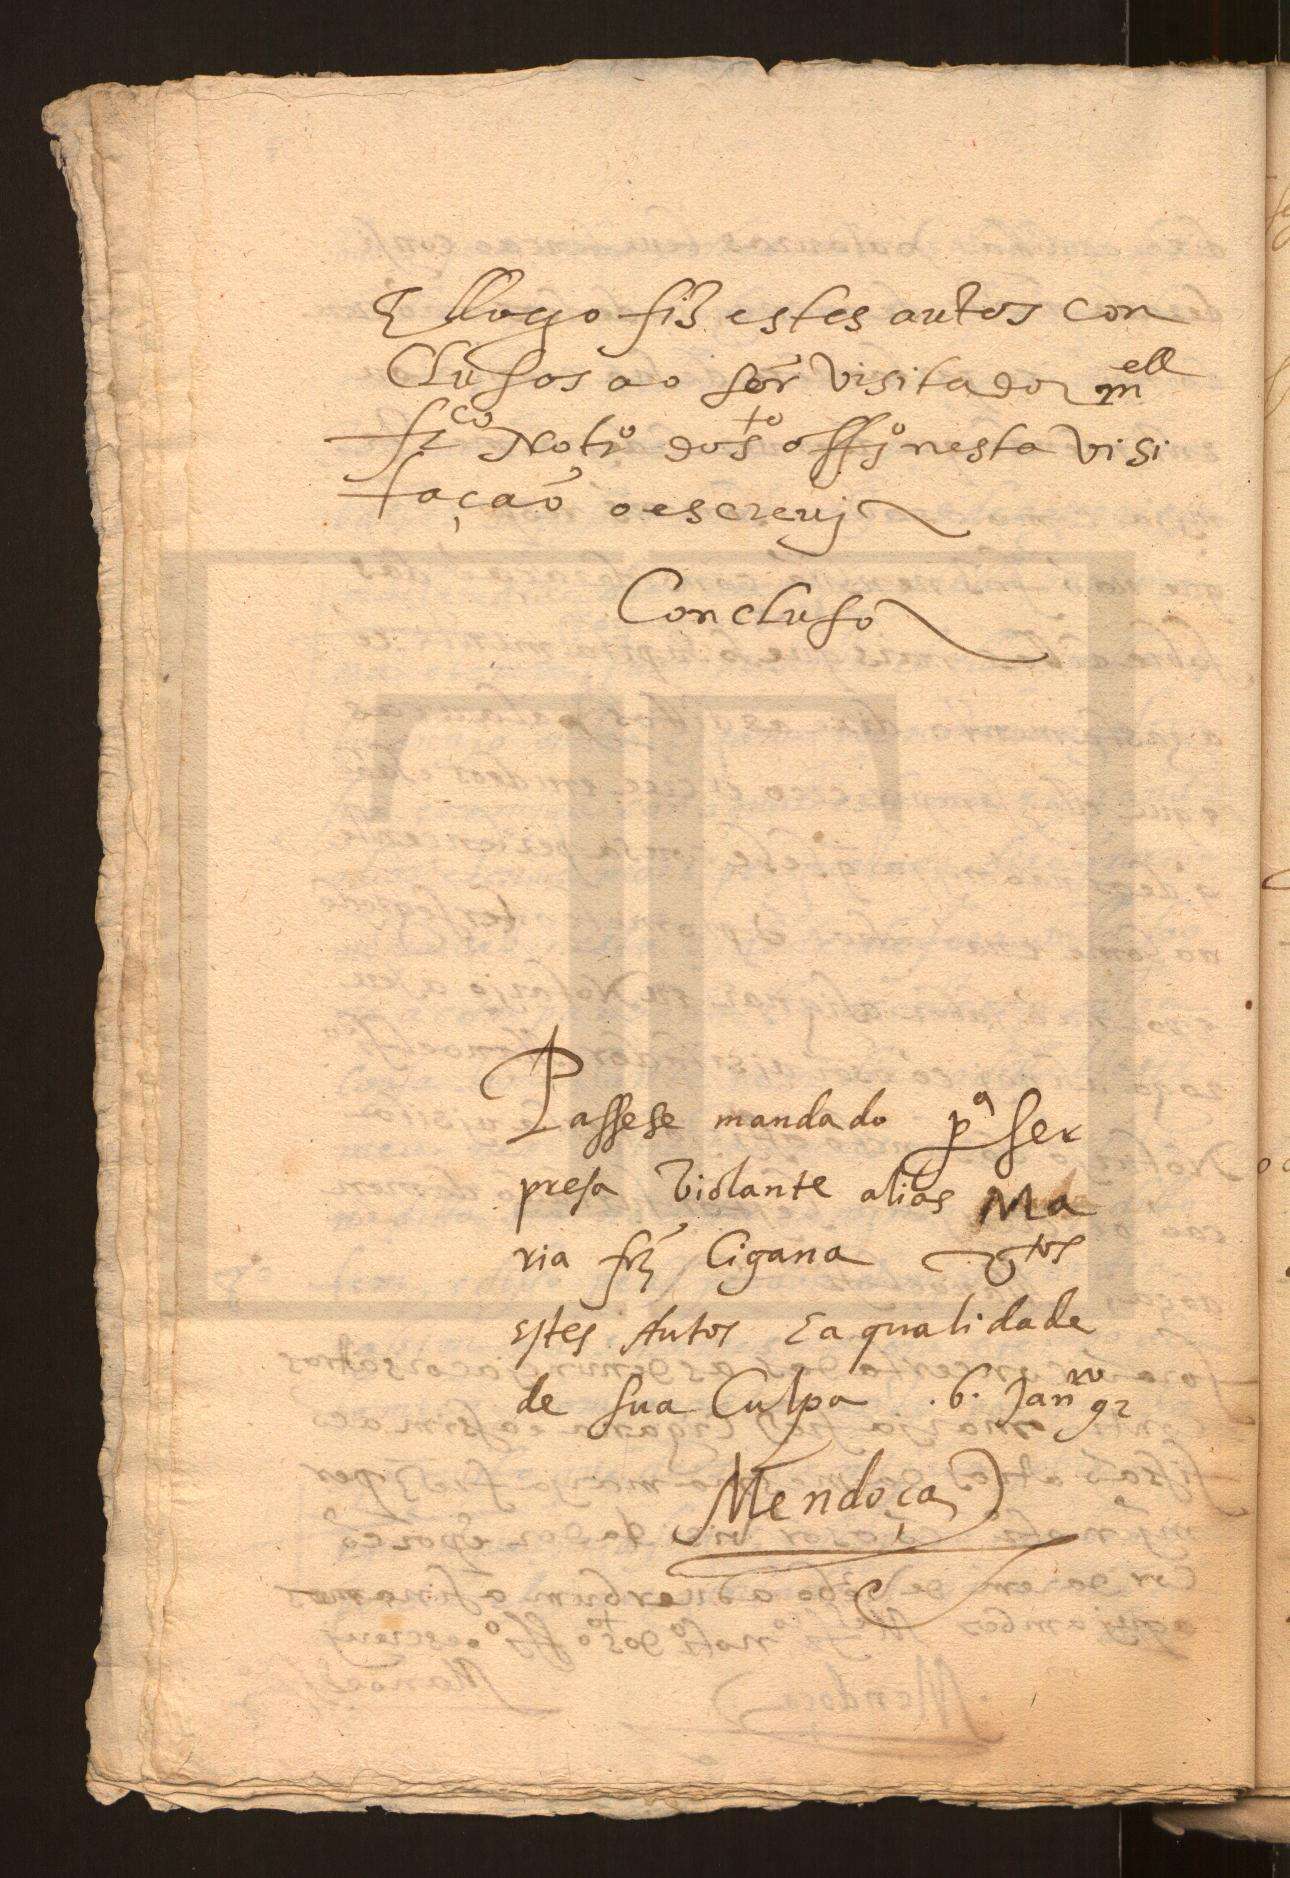 E llogo fiz estes autos con
clusos ao sõr visitador m^ell
fr^co Not^ro do s^to offiº nesta visi
tação o escrevj
Concluso
Passese mandado p^a ser
presa violante alias Ma
ria frz Cigana v^tos
estes Autos E a qualidade
de sua Culpa .6. Jan^ro 92
Mendoça